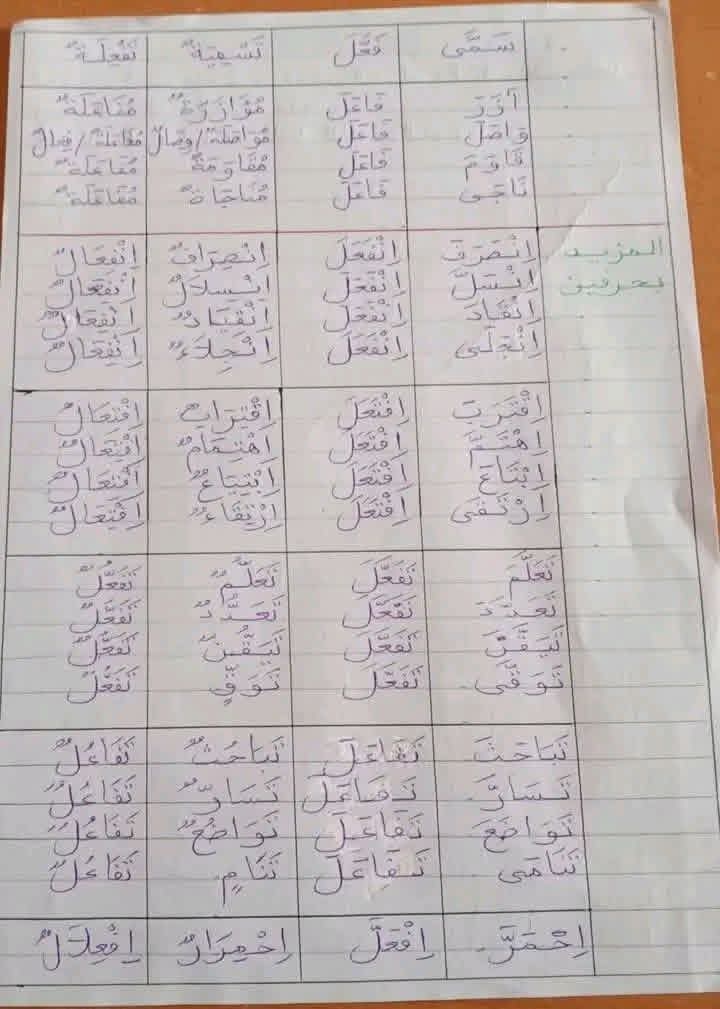 سَمَّى فَعَّلَ تَسْمِيَةٌ تَفْعِلَةٌ
آزَرَ فَاعَلَ مُؤَازَرَةٌ مُفَاعَلَةٌ
وَاصَلَ فَاعَلَ مُوَاصَلَةٌ/وِصَالٌ مُفَاعَلَةٌ/فِعَالٌ
قَاوَمَ فَاعَلَ مُقَاوَمَةٌ مُفَاعَلَةٌ
نَاجَى فَاعَلَ مُنَاجَاةٌ مُفَاعَلَةٌ
المزيد اِنْصَرَفَ اِنْفَعَلَ اِنْصِرَافٌ اِنْفِعَالٌ
بحرفين اِنْسَلَّ اِنْفَعَلَ اِنْسِلَالٌ اِنْفِعَالٌ
اِنْقَادَ اِنْفَعَلَ اِنْقِيَادٌ اِنْفِعَالٌ
اِنْجَلَى اِنْفَعَلَ اِنْجِلَاءٌ اِنْفِعَالٌ
اِقْتَرَبَ اِفْتَعَلَ اِقْتِرَابٌ اِفْتِعَالٌ
اِهْتَمَّ اِفْتَعَلَ اِهْتِمَامٌ اِفْتِعَالٌ
اِبْتَاعَ اِفْتَعَلَ اِبْتِيَاعٌ اِفْتِعَالٌ
اِرْتَقَى اِفْتَعَلَ اِرْتِقَاءٌ اِفْتِعَالٌ
تَعَلَّمَ تَفَعَّلَ تَعَلُّمٌ تَفَعُّلٌ
تَعَدَّدَ تَفَعَّلَ تَعَدُّدٌ تَفَعُّلٌ
تَيَقَّنَ تَفَعَّلَ تَيَقُّنٌ تَفَعُّلٌ
تَوَقَّى تَفَعَّلَ تَوَقٍّ تَفَعُّلٌ
تَبَاحَثَ تَفَاعَلَ تَبَاحُثٌ تَفَاعُلٌ
تَسَارَّ تَفَاعَلَ تَسَارٌّ تَفَاعُلٌ
تَوَاضَعَ تَفَاعَلَ تَوَاضُعٌ تَفَاعُلٌ
تَنَامَى تَفَاعَلَ تَنَامٍ تَفَاعُلٌ
اِحْمَرَّ اِفْعَلَّ اِحْمِرَارٌ اِفْعِلَالٌ